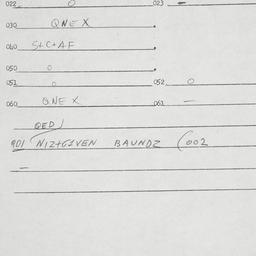 022 0 023 –
030 QNE X
040 S+C+AF
050 0
051 0 052 0
060 QNE X 061 –
QED
901 NIZ+GIVEN BAUNDZ (002
–